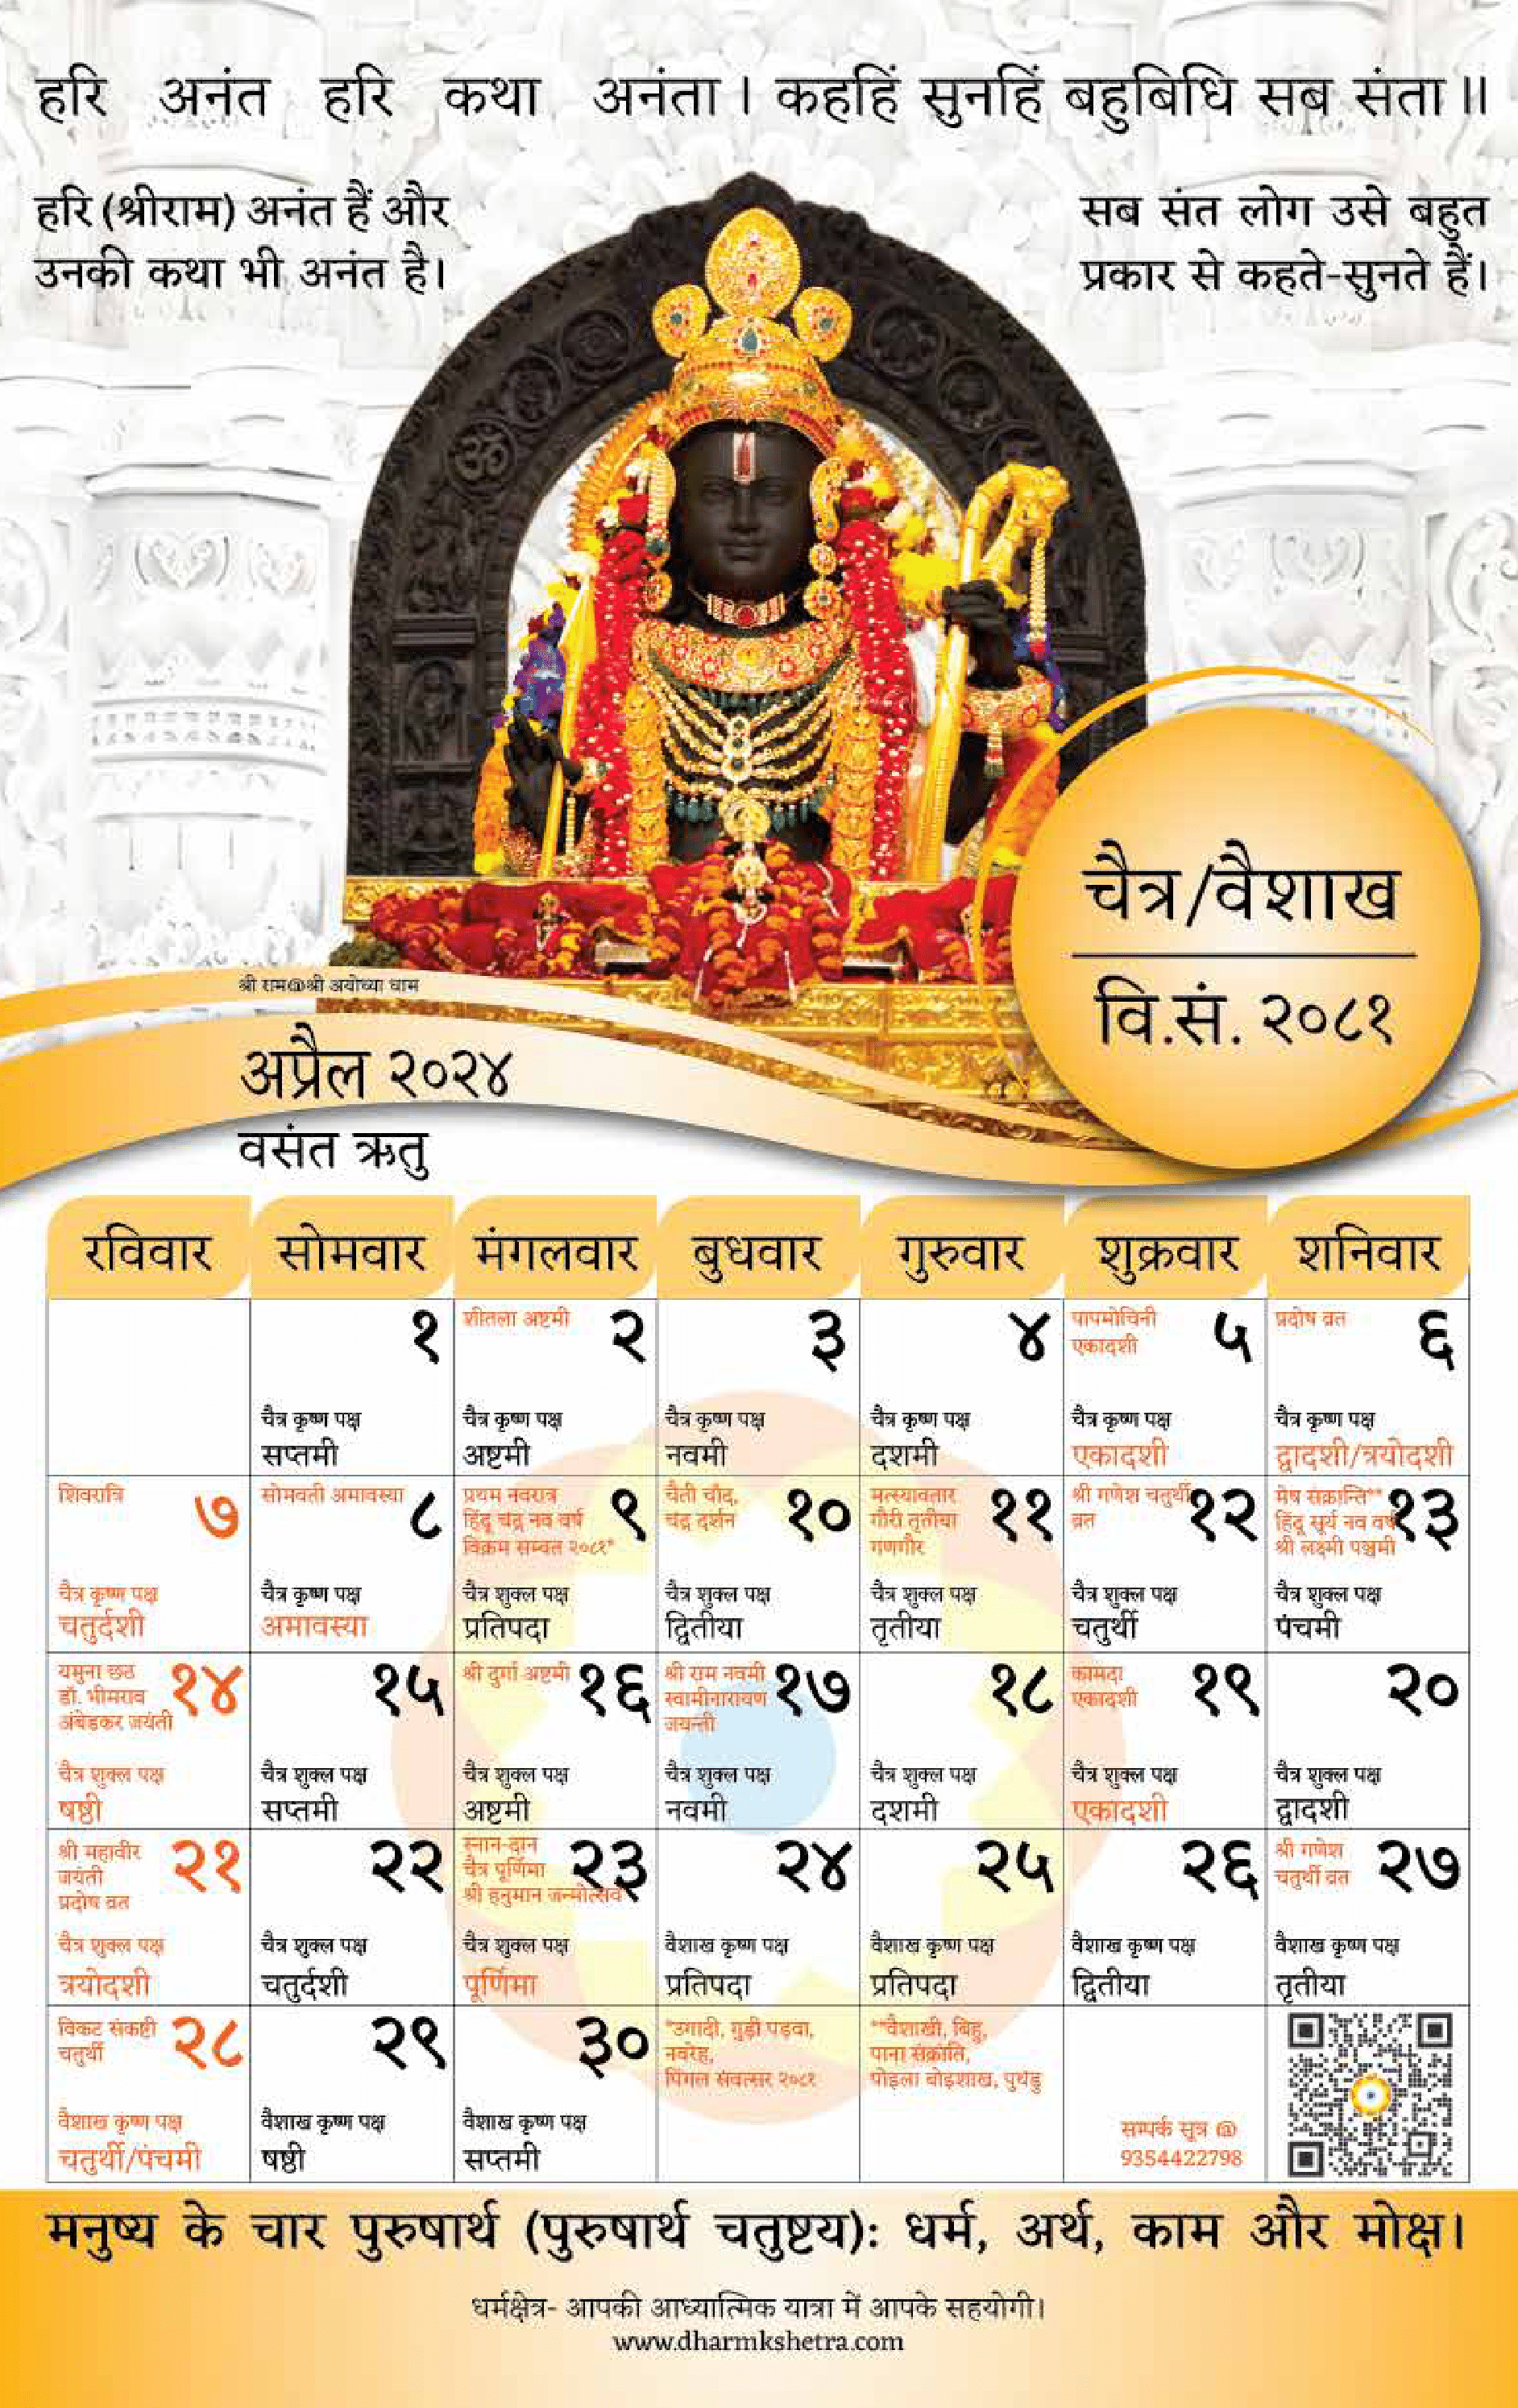 हरि अनंत हरि कथा अनंता। कहहिं सुनहिं बहुबिधि सब संता॥
हरि (श्रीराम) अनंत हैं और
उनकी कथा भी अनंत है।
सब संत लोग उसे बहुत
प्रकार से कहते-सुनते हैं।
चैत्र/वैशाख
वि.सं. २०८१
श्री राम@श्री अयोध्या धाम
अप्रैल २०२४
वसंत ऋतु
रविवार सोमवार मंगलवार बुधवार गुरुवार शुक्रवार शनिवार
१
चैत्र कृष्ण पक्ष
सप्तमी
शीतला अष्टमी २
चैत्र कृष्ण पक्ष
अष्टमी
३
चैत्र कृष्ण पक्ष
नवमी
४
चैत्र कृष्ण पक्ष
दशमी
पापमोचिनी ५
एकादशी
चैत्र कृष्ण पक्ष
एकादशी
प्रदोष व्रत ६
चैत्र कृष्ण पक्ष
द्वादशी/त्रयोदशी
शिवरात्रि ७
चैत्र कृष्ण पक्ष
चतुर्दशी
सोमवती अमावस्या ८
चैत्र कृष्ण पक्ष
अमावस्या
प्रथम नवरात्र ९
हिंदू चंद्र नव वर्ष
विक्रम सम्वत २०८१*
चैत्र शुक्ल पक्ष
प्रतिपदा
चैती चाँद, १०
चंद्र दर्शन
चैत्र शुक्ल पक्ष
द्वितीया
मत्स्यावतार ११
गौरी तृतीया
गणगौर
चैत्र शुक्ल पक्ष
तृतीया
श्री गणेश चतुर्थी १२
व्रत
चैत्र शुक्ल पक्ष
चतुर्थी
मेष संक्रान्ति** १३
हिंदू सूर्य नव वर्ष
श्री लक्ष्मी पञ्चमी
चैत्र शुक्ल पक्ष
पंचमी
यमुना छठ १४
डॉ. भीमराव
अंबेडकर जयंती
चैत्र शुक्ल पक्ष
षष्ठी
१५
चैत्र शुक्ल पक्ष
सप्तमी
श्री दुर्गा अष्टमी १६
चैत्र शुक्ल पक्ष
अष्टमी
श्री राम नवमी १७
स्वामीनारायण
जयन्ती
चैत्र शुक्ल पक्ष
नवमी
१८
चैत्र शुक्ल पक्ष
दशमी
कामदा १९
एकादशी
चैत्र शुक्ल पक्ष
एकादशी
२०
चैत्र शुक्ल पक्ष
द्वादशी
श्री महावीर २१
जयंती
प्रदोष व्रत
चैत्र शुक्ल पक्ष
त्रयोदशी
२२
चैत्र शुक्ल पक्ष
चतुर्दशी
स्नान-दान २३
चैत्र पूर्णिमा
श्री हनुमान जन्मोत्सव
चैत्र शुक्ल पक्ष
पूर्णिमा
२४
वैशाख कृष्ण पक्ष
प्रतिपदा
२५
वैशाख कृष्ण पक्ष
प्रतिपदा
२६
वैशाख कृष्ण पक्ष
द्वितीया
श्री गणेश २७
चतुर्थी व्रत
वैशाख कृष्ण पक्ष
तृतीया
विकट संकष्टी २८
चतुर्थी
वैशाख कृष्ण पक्ष
चतुर्थी/पंचमी
२९
वैशाख कृष्ण पक्ष
षष्ठी
३०
वैशाख कृष्ण पक्ष
सप्तमी
*उगादी, गुड़ी पड़वा,
नवरेह,
पिंगल संवत्सर २०८१
**वैशाखी, बिहु,
पाना संक्रांति,
पोइला बोइशाख, पुथंडु
सम्पर्क सूत्र @
9354422798
मनुष्य के चार पुरुषार्थ (पुरुषार्थ चतुष्टय): धर्म, अर्थ, काम और मोक्ष।
धर्मक्षेत्र- आपकी आध्यात्मिक यात्रा में आपके सहयोगी।
www.dharmkshetra.com